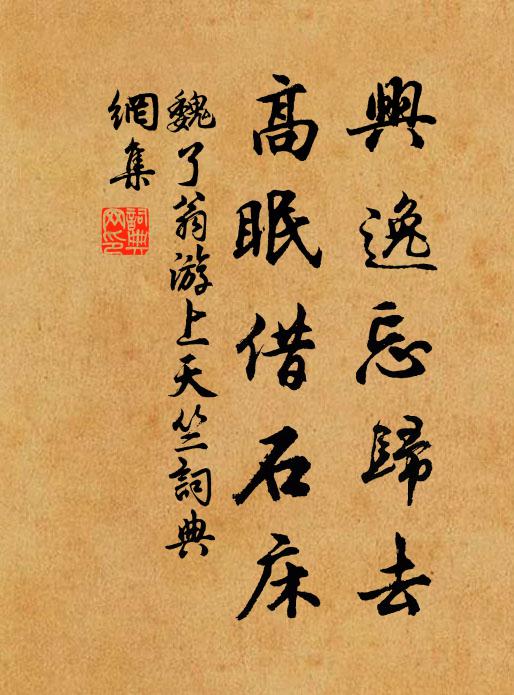 興逸忘歸去
高眠借石床
魏了翁游上天竺詞典
網集
詞典網印